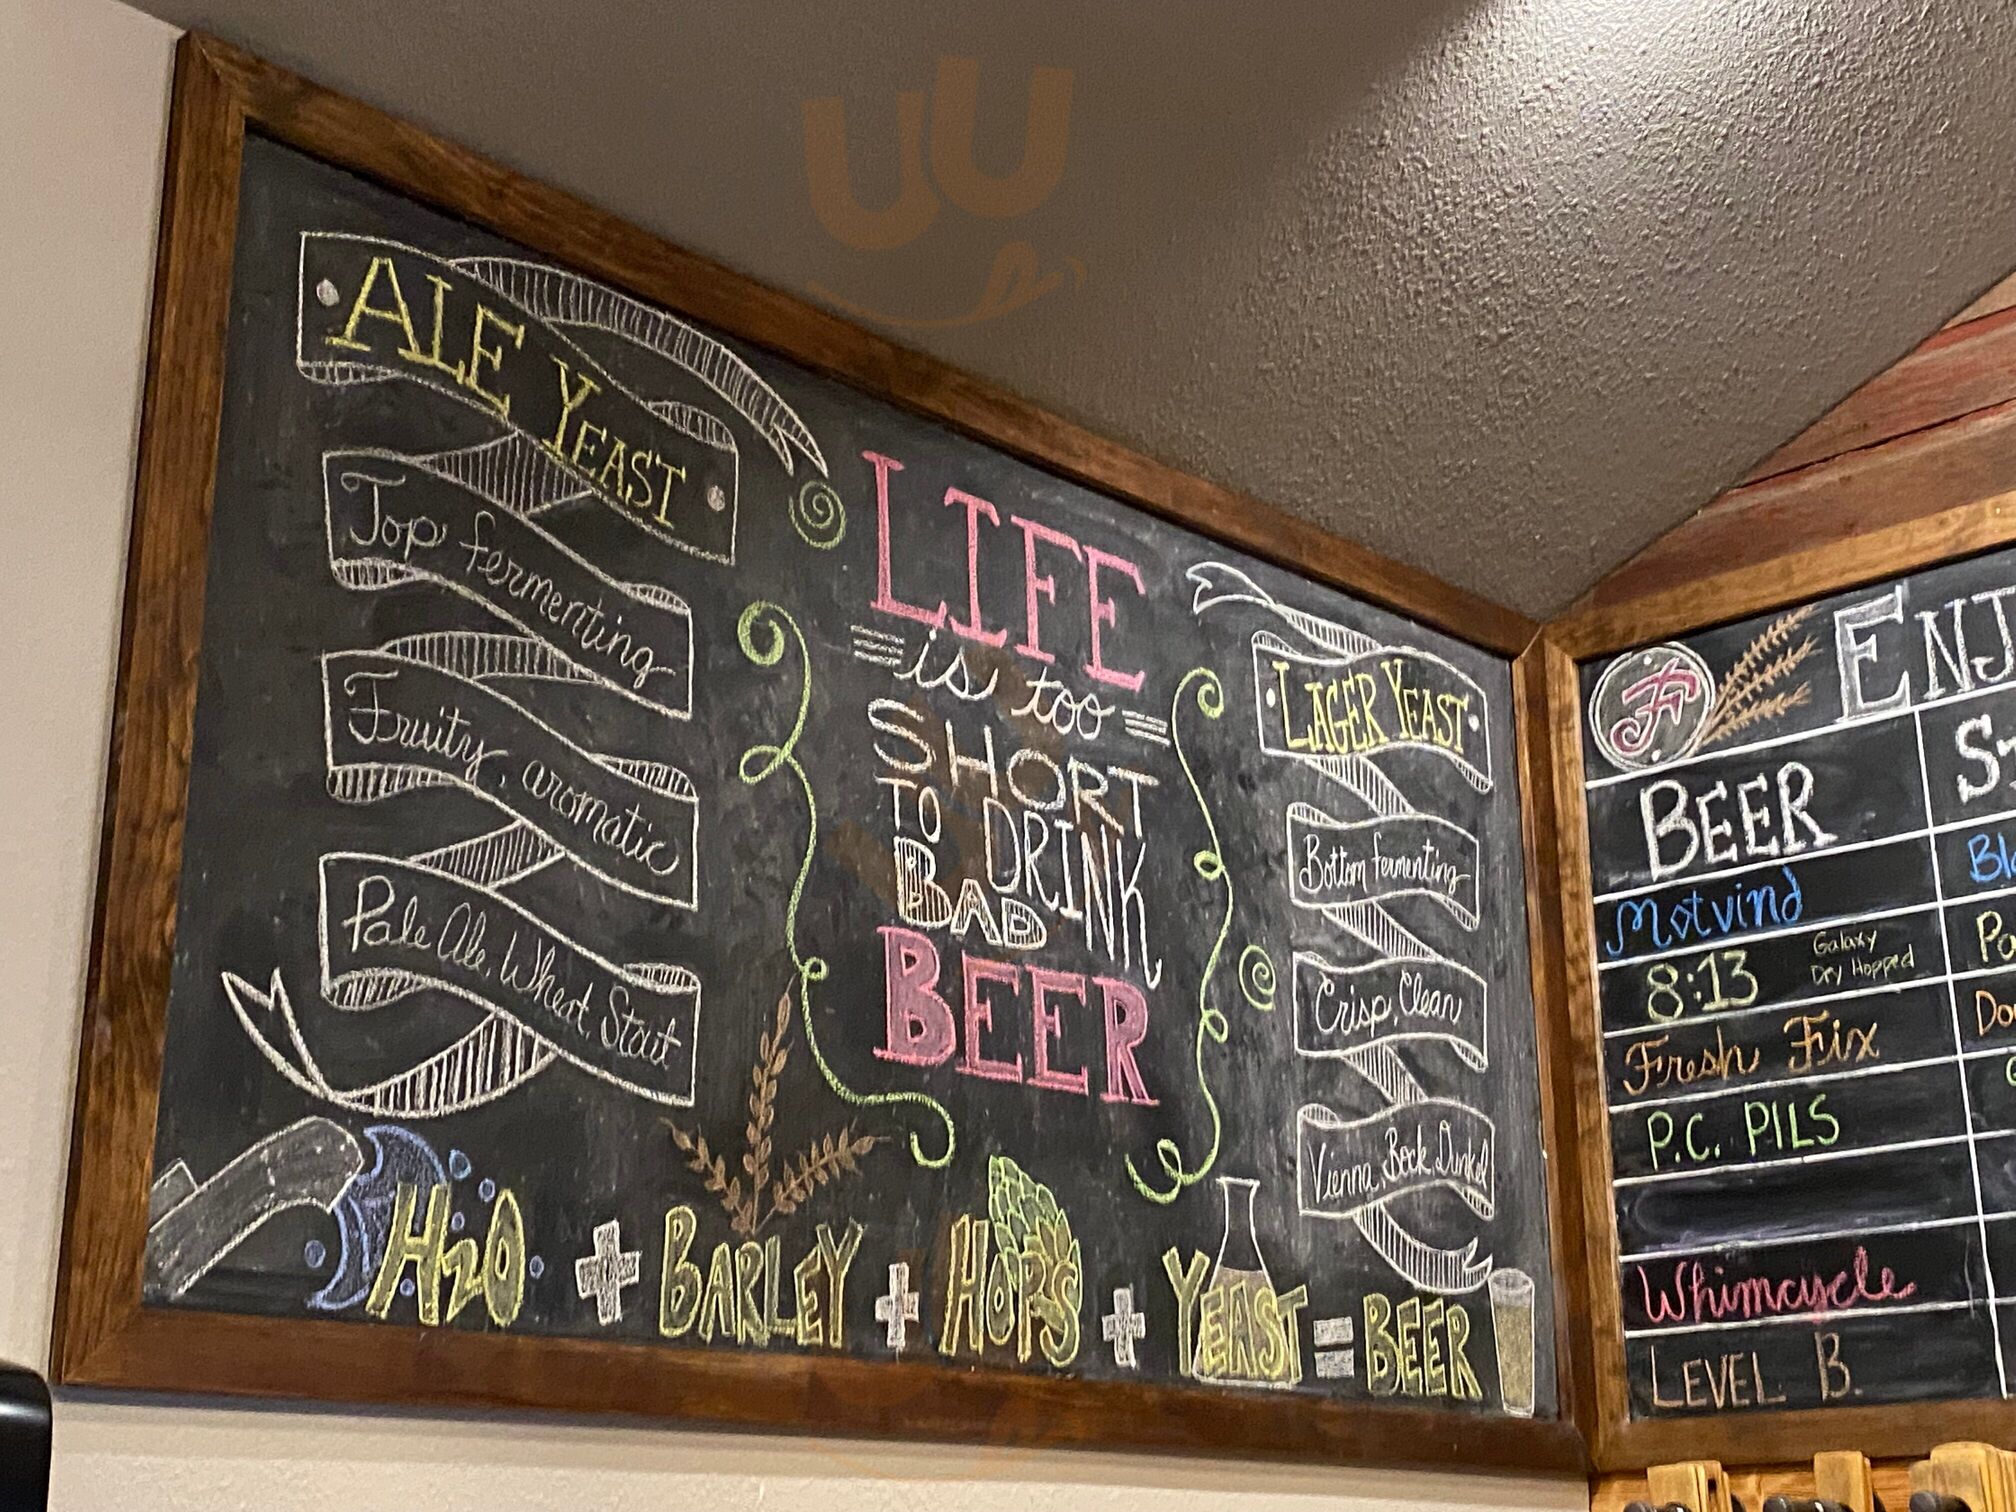 ALE YEAST
Top fermenting
Fruity, aromatic
Pale Ale, Wheat, Stout
LIFE
is too
SHORT
TO DRINK
BAD
BEER
LAGER YEAST
Bottom fermenting
Crisp, Clean
Vienna, Bock, Dunkel
H2O + BARLEY + HOPS + YEAST = BEER
BEER
Motvind
8:13 Galaxy
Dry Hopped
Fresh Fix
P.C. PILS
Whimcycle
LEVEL B.